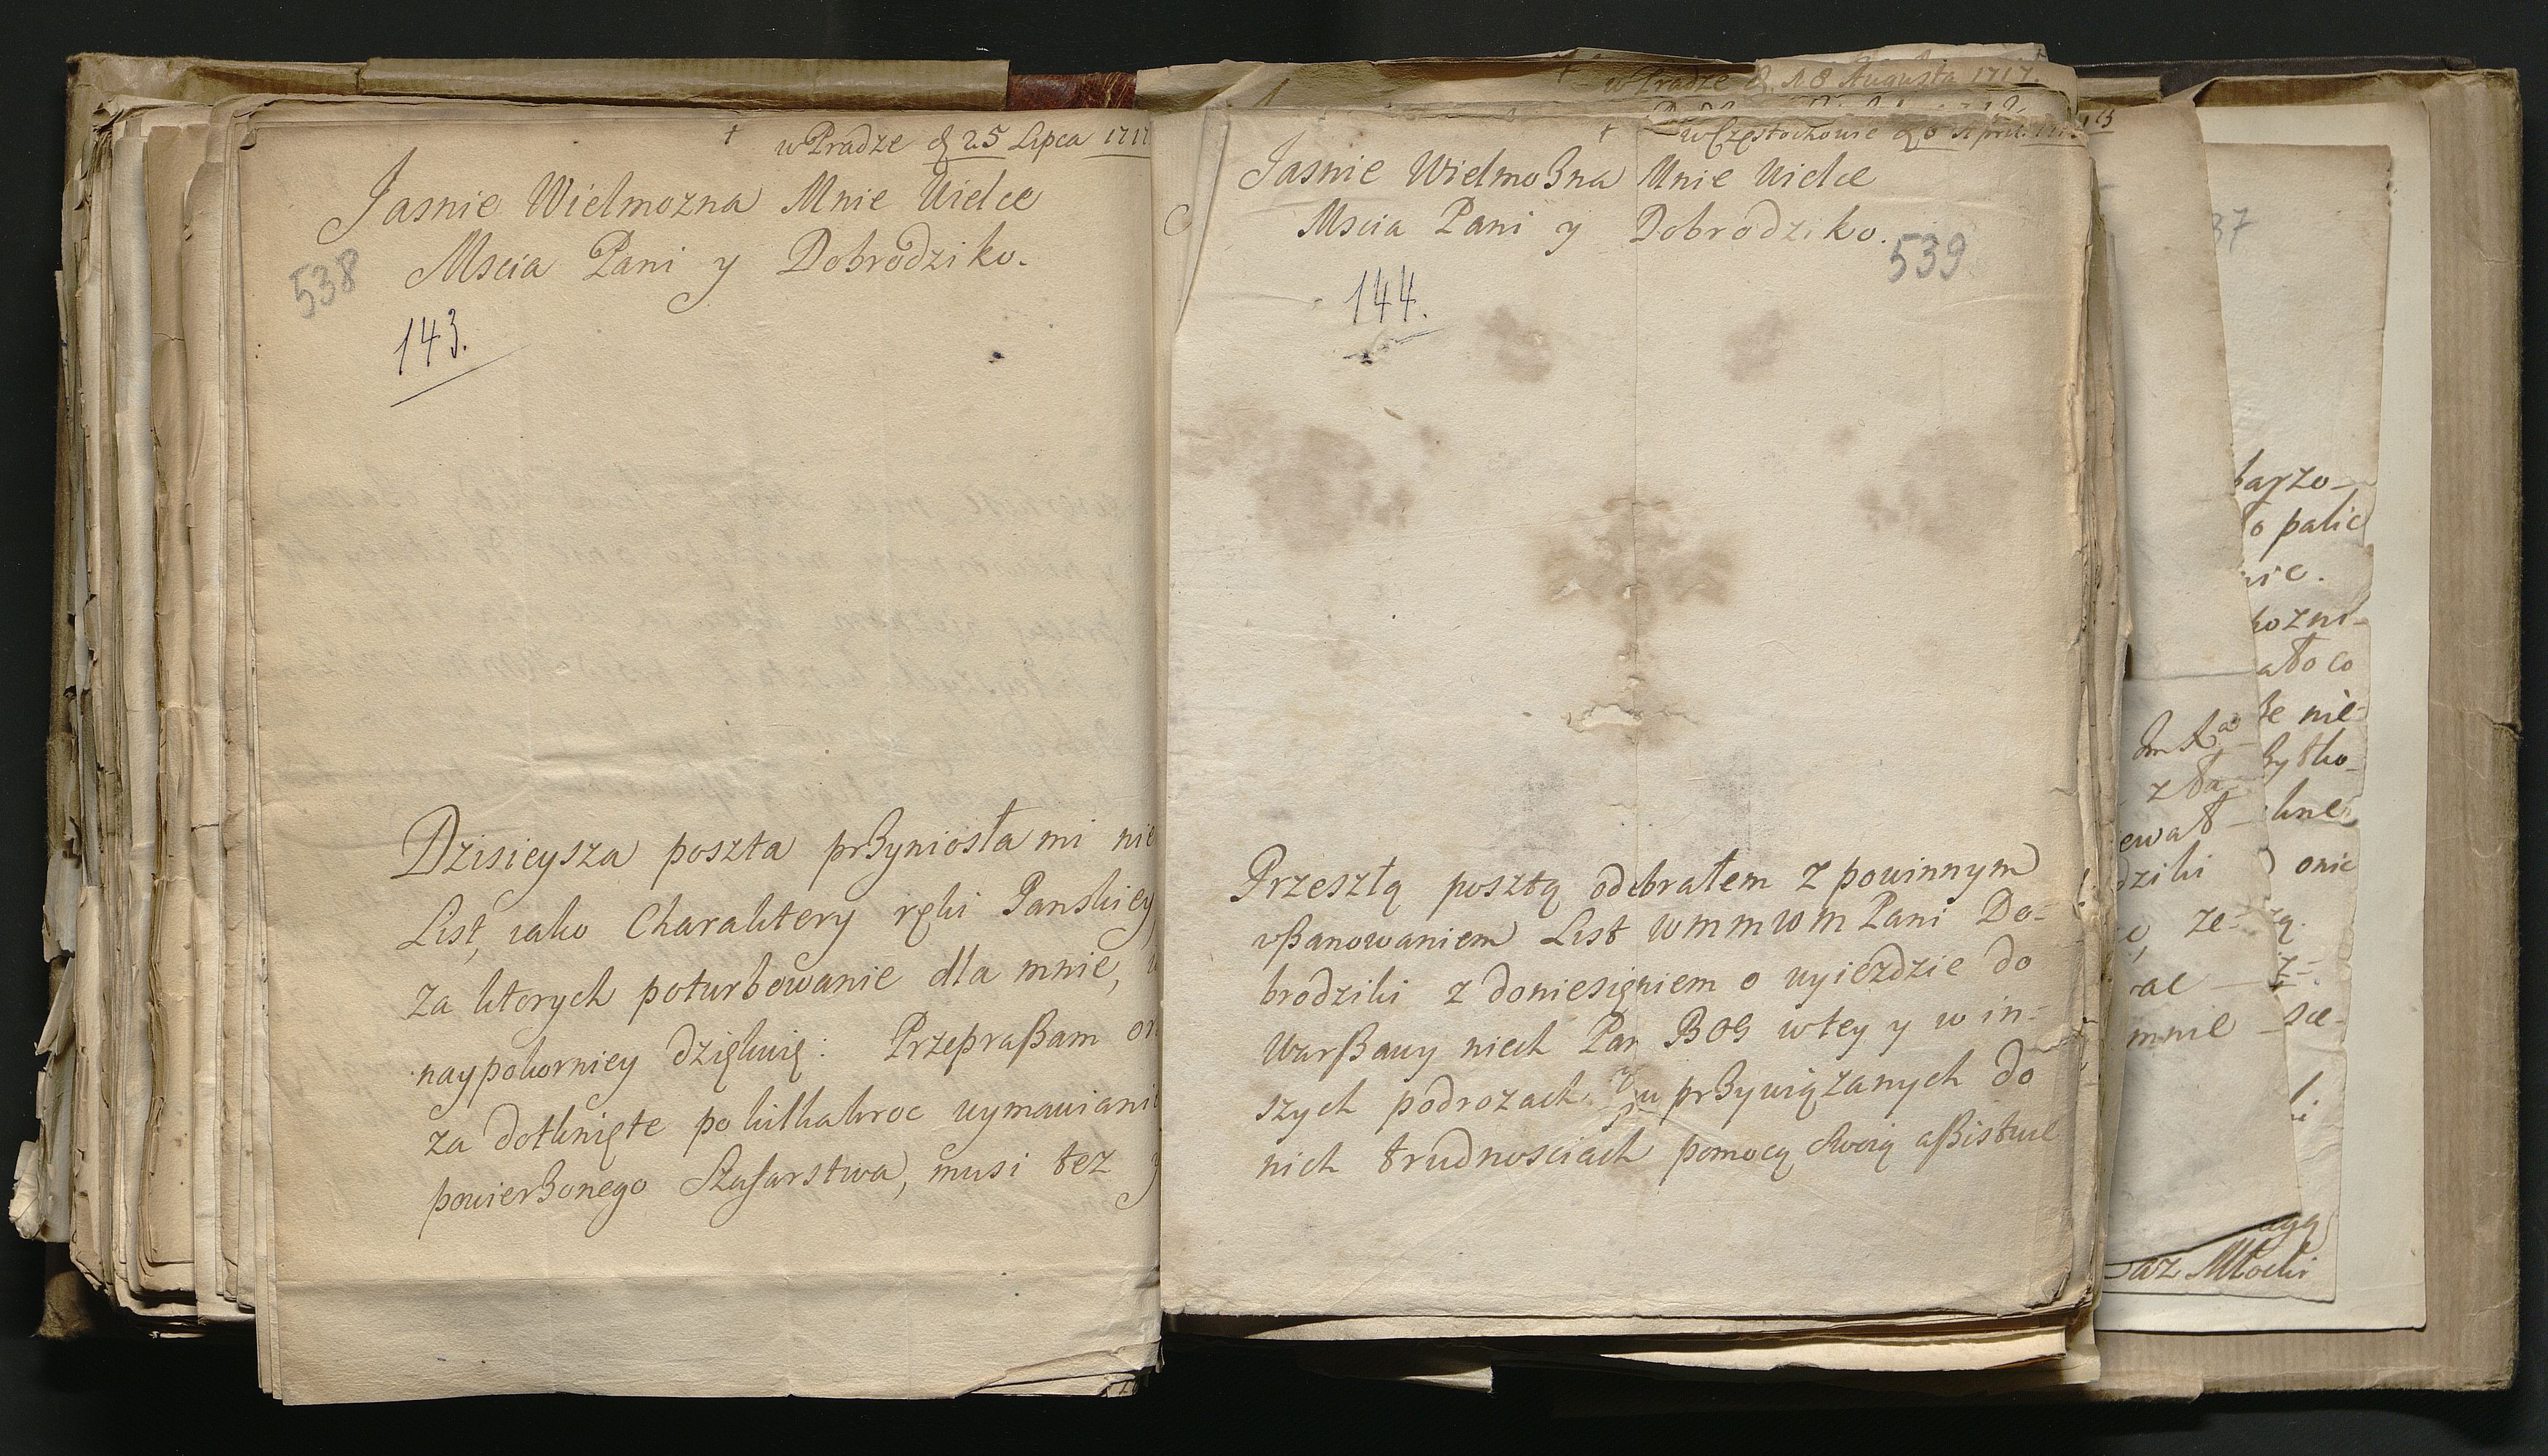 † w Pradze d. 25 Lipca 1717
Jasnie Wielmozna Mnie Wielce
Mscia Pani y Dobrodziko.
538
143.
Dzisieysza poszta przyniosła mi nie
List, iako Charaktery ręki Panskiey,
za ktorych poturbowanie dla mnie,
naypokorniey dziękuię: Przepraßam
za dotknięte po kilkakroc wymawiani
powierzonego Szafarstwa, musi tez y
w Pradze d. 18 Augusta 1717.
† w Częstochowie d. 6 April.
Jasnie Wielmozna Mnie Wielce
Mscia Pani y Dobrodziko.
539
144.
Przeszłą posztą odebrałem z powinnym
vßanowaniem List WMMWM Pani Do-
brodziki z doniesięniem o wyiezdzie do
Warßawy niech Pan BOG w tey y w in-
szych podrozach y w przywiązanych do
nich trudnosciach pomocą swoią aßistuie
37
barzo-
o palic
nic.
kozni-
ało co
że nie-
żytko-
kne
onic
zą.
sce-
Im
zła
ewał
dziki
ze-
rac
mnie
ki
Młocki